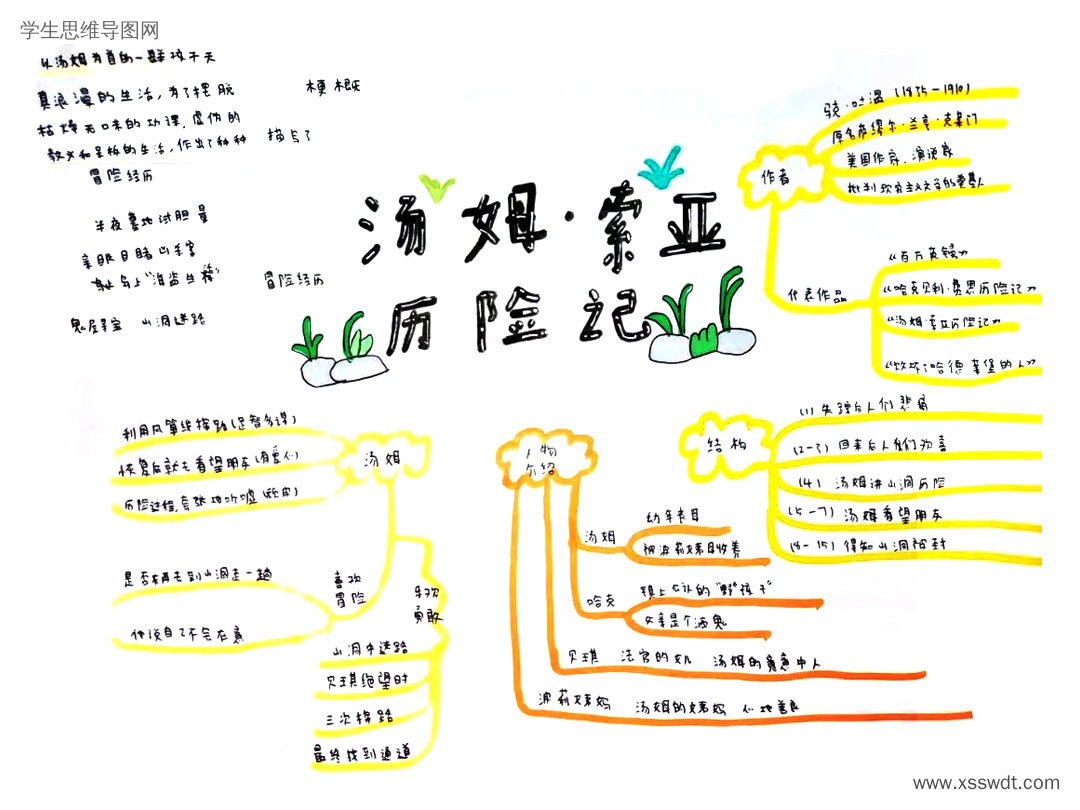 学生思维导图网
以汤姆为首的一群孩子天
真浪漫的生活，为了摆脱
枯燥无味的功课，虚伪的
教义和呆板的生活，作出了种种
冒险经历
梗概
描写了
半夜墓地试胆量
亲眼目睹凶手害
荒岛上“海盗生活”
冒险经历
鬼屋寻宝 山洞迷路
汤姆·索亚
历险记
作者
马克·吐温 (1835-1910)
原名萨缪尔·兰亨·克莱门
美国作家、演说家
批判现实主义文学的奠基人
代表作品
《百万英镑》
《哈克贝利·费恩历险记》
《汤姆·索亚历险记》
《败坏了哈德莱堡的人》
结构
(1) 失踪后人们悲痛
(2-3) 回来后人们为喜
(4) 汤姆讲山洞历险
(5-7) 汤姆看望朋友
(8-15) 得知山洞被封
汤姆
利用风筝线探路(足智多谋)
恢复后就去看望朋友(有爱心)
历险过程,夸张地吹嘘(顽皮)
喜欢
冒险
是否想再去到山洞走一趟
他说自己不会在意
勇敢
山洞中迷路
贝琪绝望时
三次探路
最终找到通道
人物
介绍
汤姆
幼年丧母
被波莉姨母收养
哈克
镇上公认的“野孩子”
父亲是个酒鬼
贝琪 法官的女儿 汤姆的意中人
波莉姨妈 汤姆的姨妈 心地善良
www.xsswdt.com